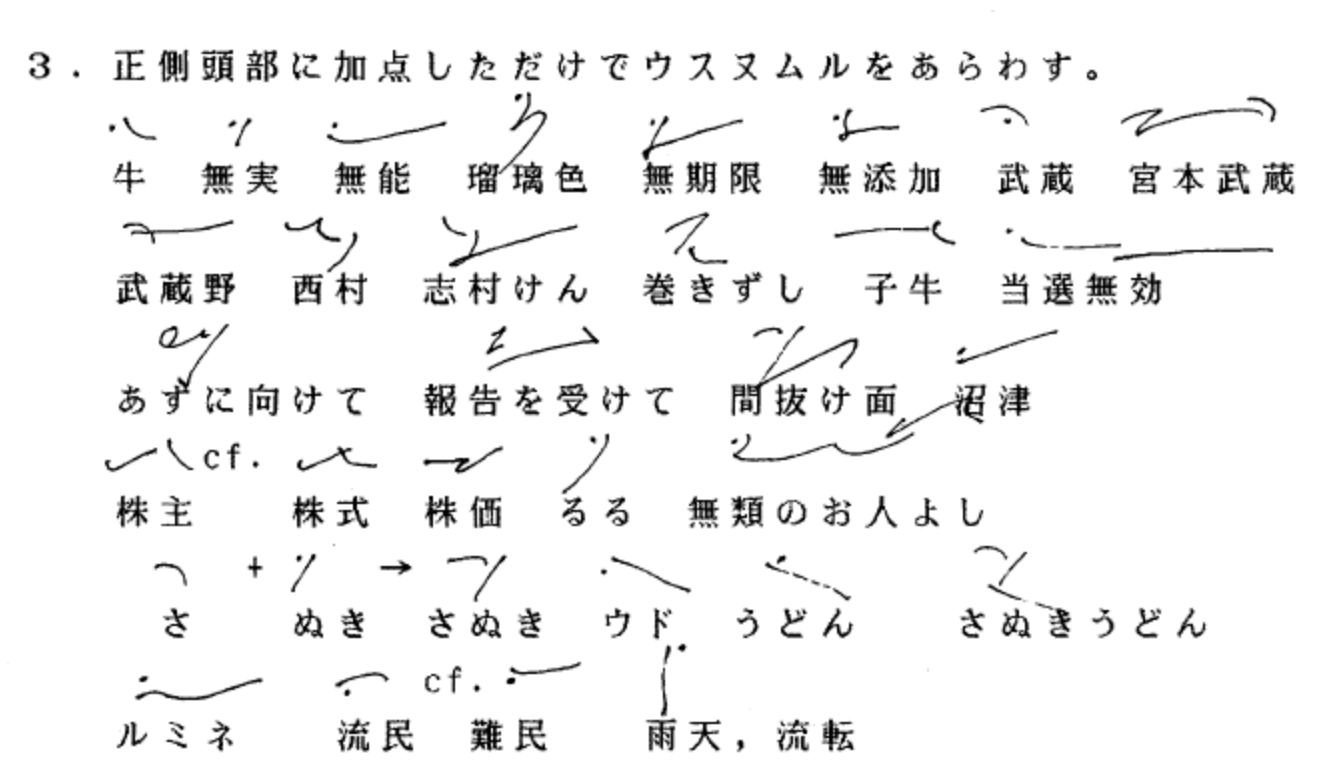 3．正側頭部に加点しただけでウスヌムルをあらわす。
牛　無実　無能　瑠璃色　無期限　無添加　武蔵　宮本武蔵
武蔵野　西村　志村けん　巻きずし　子牛　当選無効
あずに向けて　報告を受けて　間抜け面　沼津
cf.
株主　株式　株価　るる　無類のお人よし
+　→
さ　ぬき　さぬき　ウド　うどん　さぬきうどん
cf.
ルミネ　流民　難民　雨天，流転